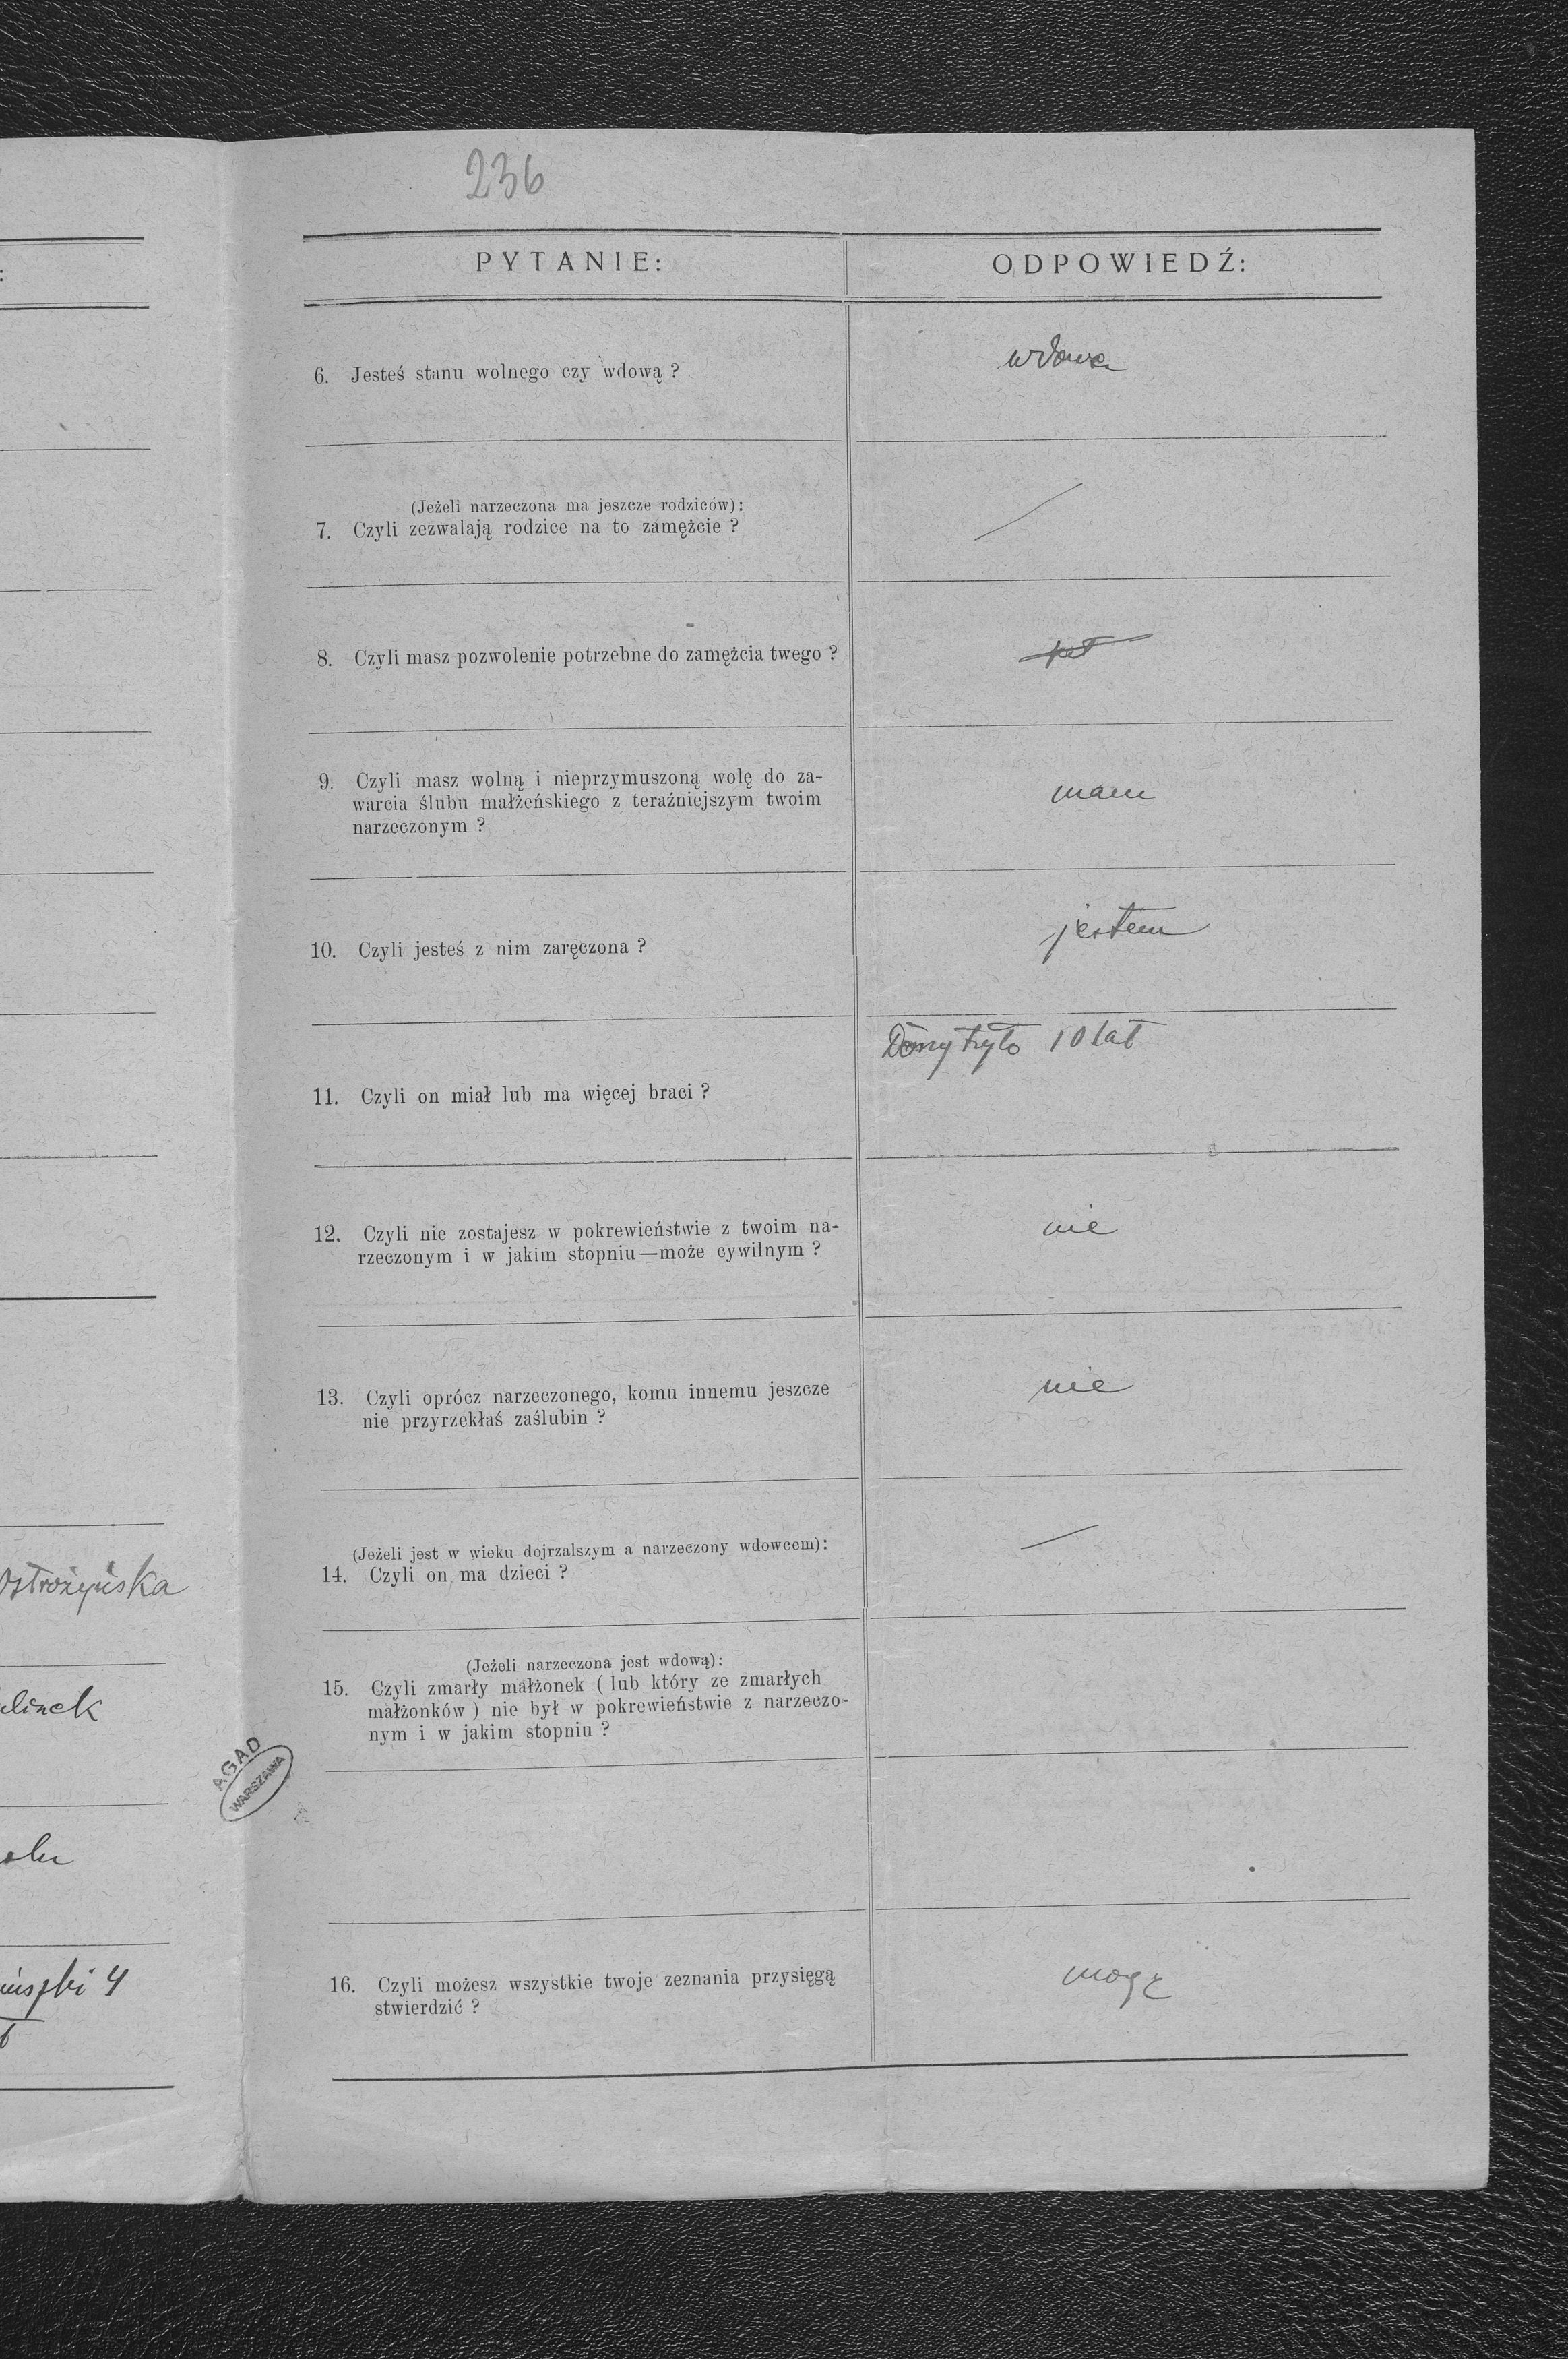 236
PYTANIE:
ODPOWIEDŹ:
6. Jesteś stanu wolnego czy wdową ?
wdowa
(Jeżeli narzeczona ma jeszcze rodziców):
7. Czyli zezwalają rodzice na to zamężcie ?
8. Czyli masz pozwolenie potrzebne do zamężcia twego ?
9. Czyli masz wolną i nieprzymuszoną wolę do za-
warcia ślubu małżeńskiego z teraźniejszym twoim
narzeczonym ?
mam
10. Czyli jesteś z nim zaręczona ?
jestem
10 lat
11. Czyli on miał lub ma więcej braci ?
12. Czyli nie zostajesz w pokrewieństwie z twoim na-
rzeczonym i w jakim stopniu—może cywilnym ?
nie
13. Czyli oprócz narzeczonego, komu innemu jeszcze
nie przyrzekłaś zaślubin ?
nie
(Jeżeli jest w wieku dojrzalszym a narzeczony wdowcem):
14. Czyli on ma dzieci ?
(Jeżeli narzeczona jest wdową):
15. Czyli zmarły małżonek ( lub który ze zmarłych
małżonków ) nie był w pokrewieństwie z narzeczo-
nym i w jakim stopniu ?
16. Czyli możesz wszystkie twoje zeznania przysięgą
stwierdzić ?
mogę
Ostrożyńska
AGAD
WARSZAWA
4